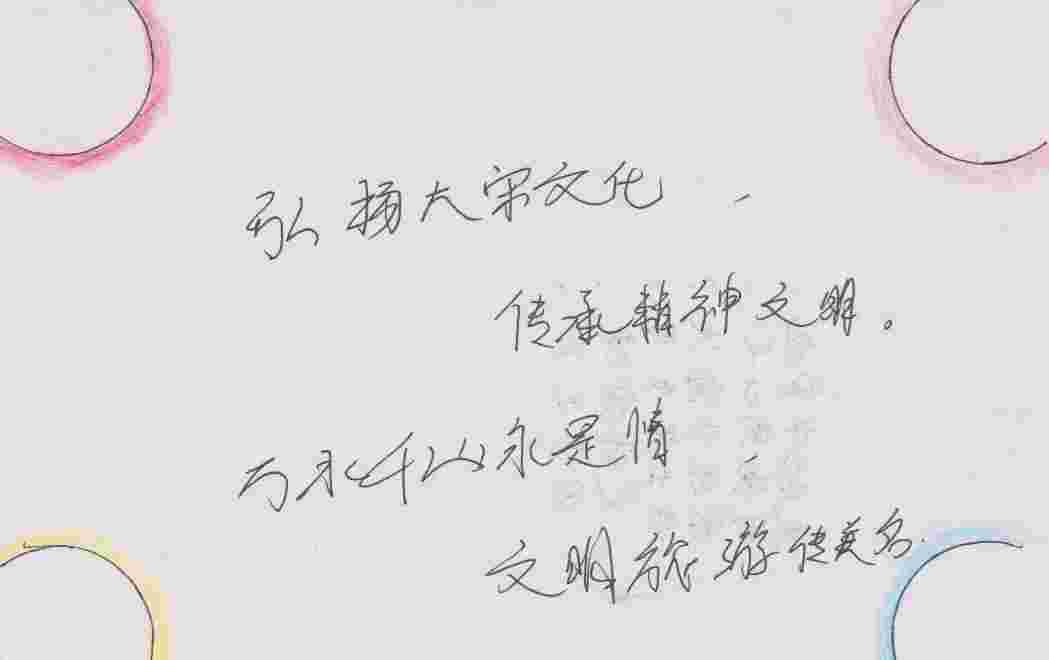 弘扬大宋文化、
传承精神文明。
万水千山永是情
文明旅游传美名.